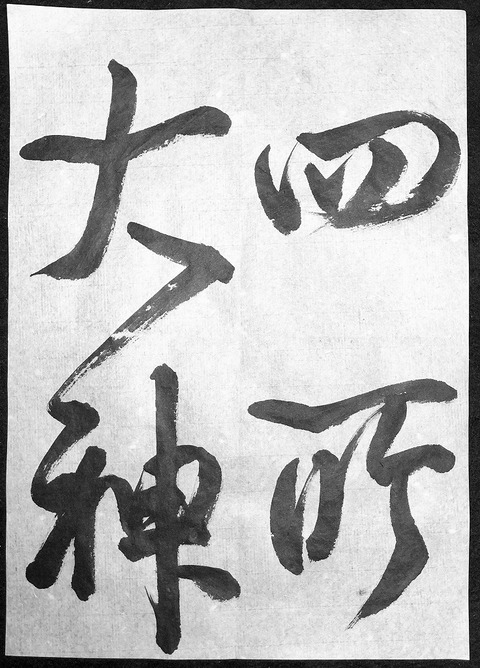 四所
大神